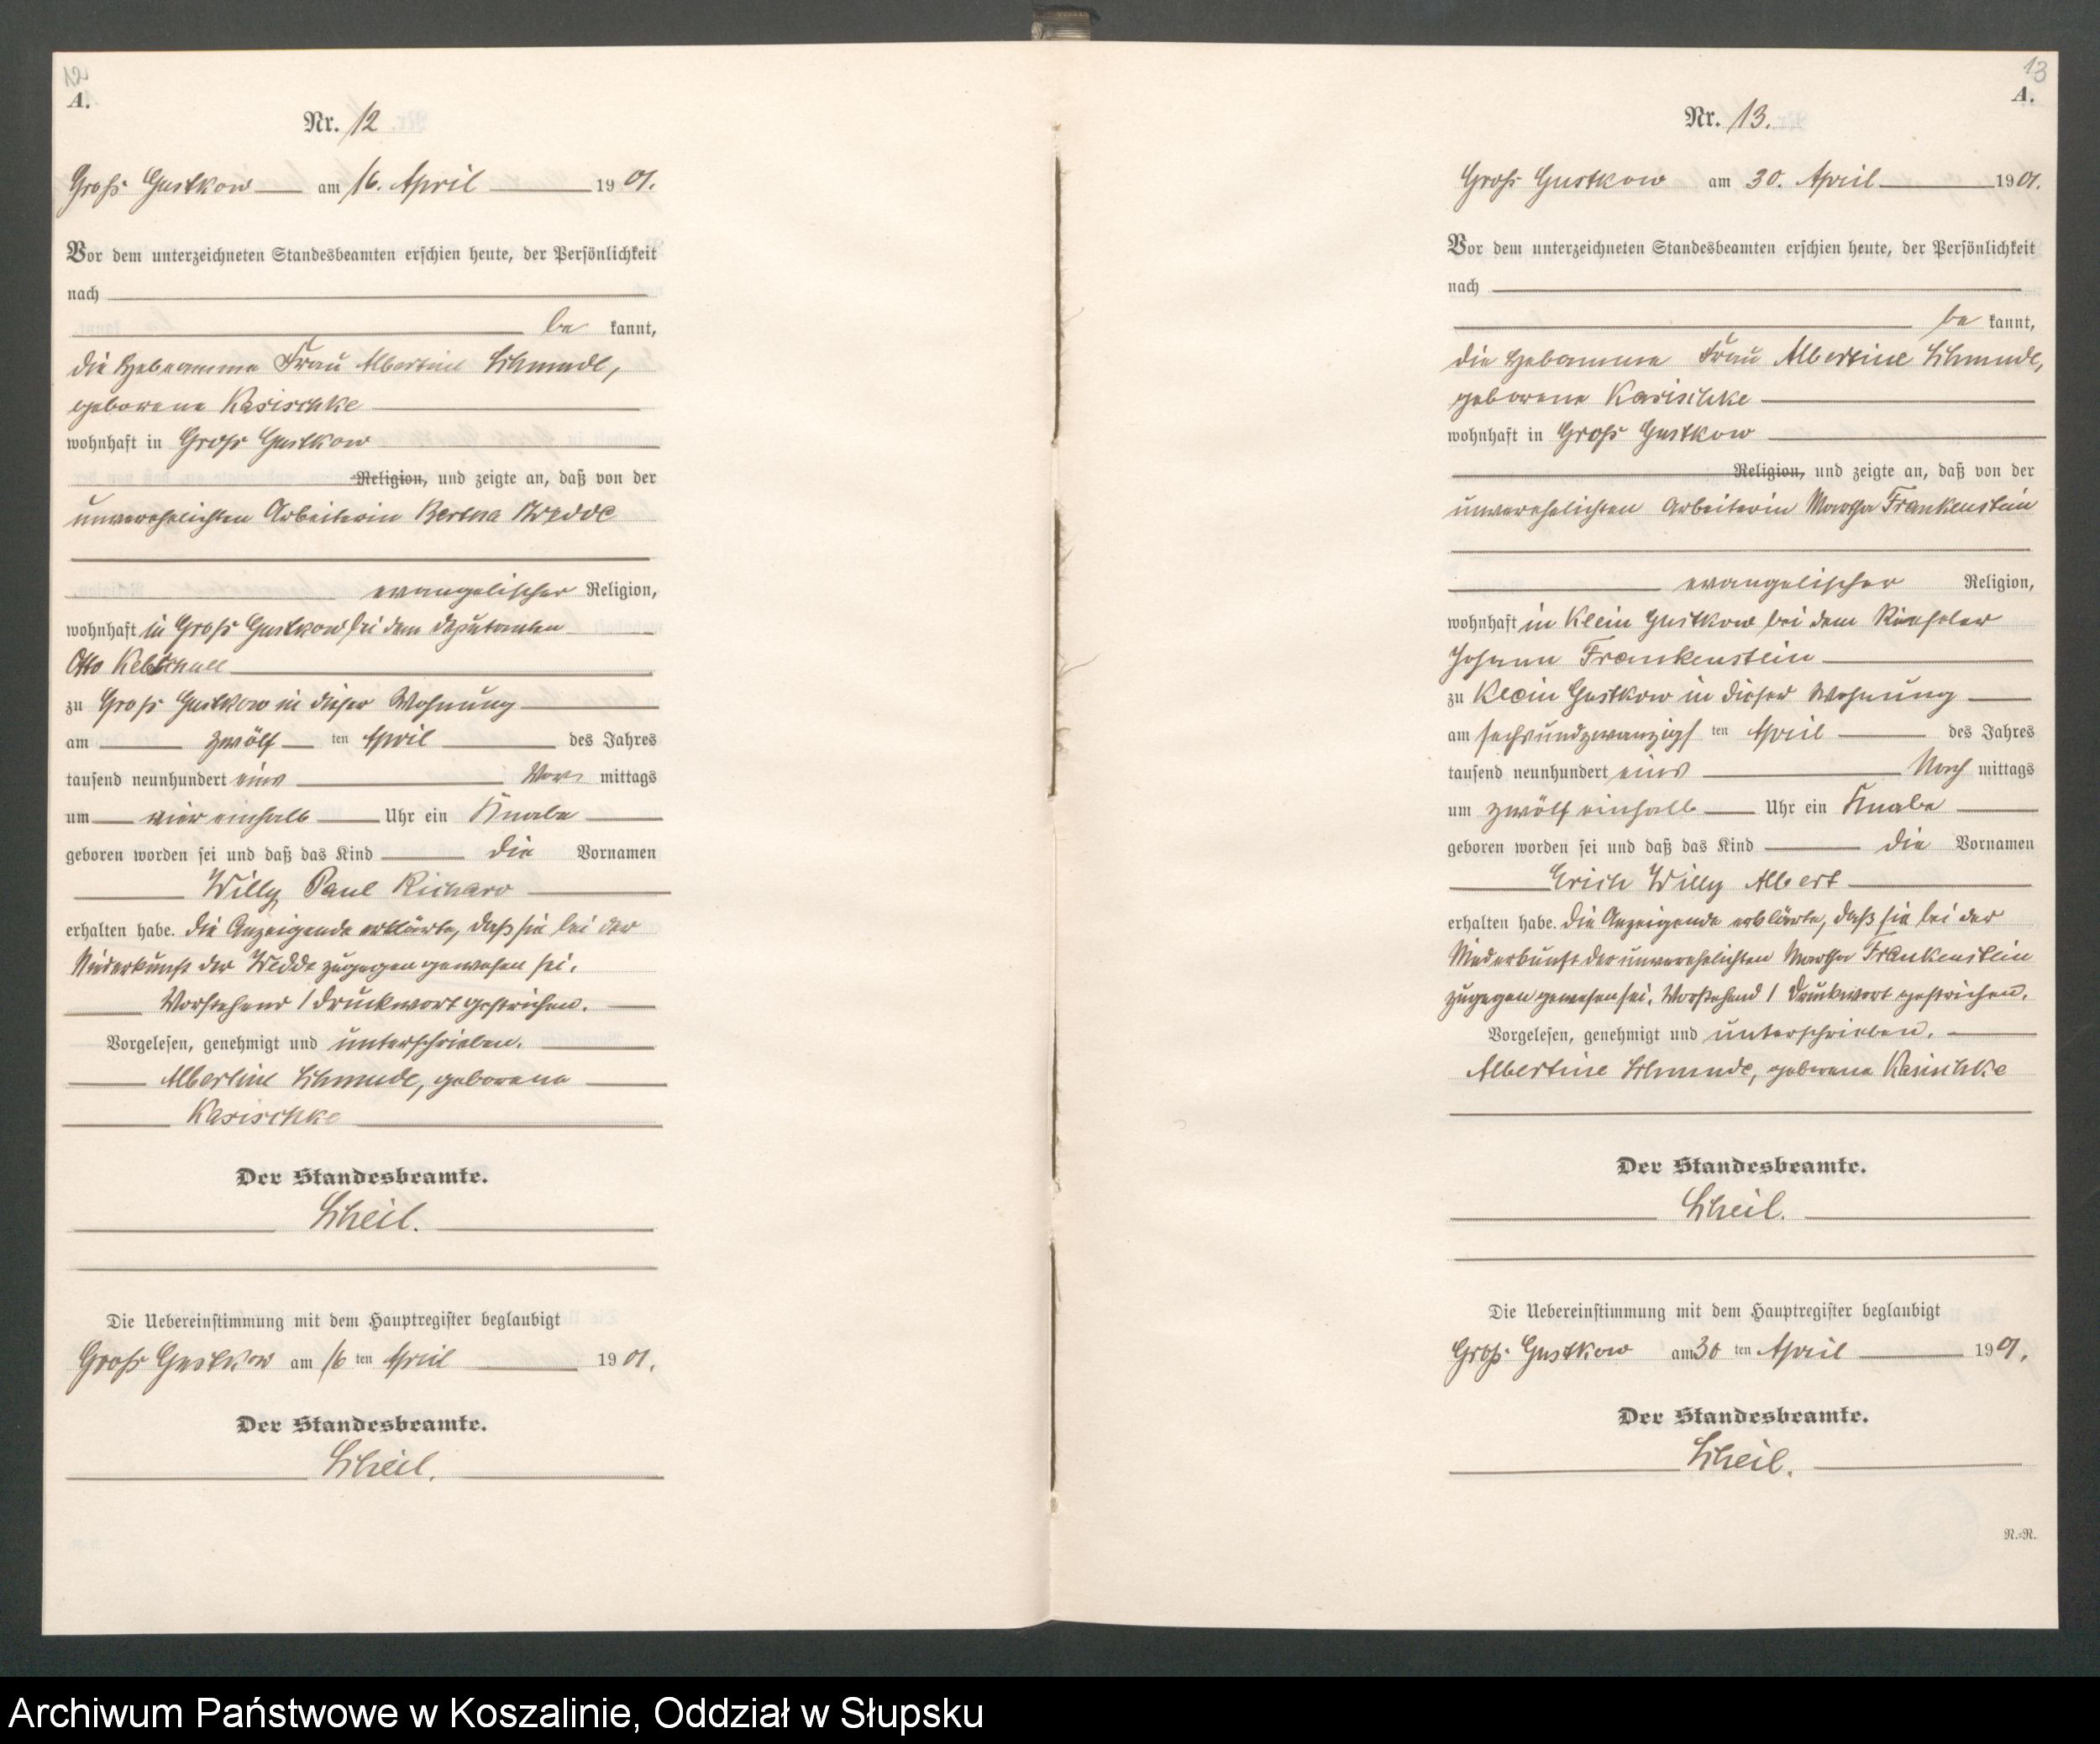 12
A.
Nr. 12
Groß Gustkow am 16. April 1901.
Vor dem unterzeichneten Standesbeamten erschien heute, der Persönlichkeit
nach
be kannt,
die Hebeamme Frau Albertine Schmude,
geborene Kasischke
wohnhaft in Groß Gustkow
Religion, und zeigte an, daß von der
unverehelichten Arbeiterin Bertha Wedde
evangelischer Religion,
wohnhaft in Groß Gustkow bei dem Deputanten
Otto
zu Groß Gustkow in dieser Wohnung
am zwölf ten April des Jahres
tausend neunhundert eins Vor mittags
um vier einhalb Uhr ein Knabe
geboren worden sei und daß das Kind die Vornamen
Willy Paul Richard
erhalten habe. Die Anzeigende erklärte, daß sie bei der
Niederkunft der Wedde zugegen gewesen sei.
Vorstehend 1 Druckwort gestrichen.
Vorgelesen, genehmigt und unterschrieben.
Albertine Schmude, geborene
Kasischke
Der Standesbeamte.
Scheil.
Die Uebereinstimmung mit dem Hauptregister beglaubigt
Groß Gustkow am 16 ten April 1901.
Der Standesbeamte.
Scheil.
13
A.
Nr. 13.
Groß Gustkow am 30. April 1901.
Vor dem unterzeichneten Standesbeamten erschien heute, der Persönlichkeit
nach
be kannt,
die Hebamme Frau Albertine Schmude,
geborene Kasischke
wohnhaft in Groß Gustkow
Religion, und zeigte an, daß von der
unverehelichten Arbeiterin Martha Frankenstein
evangelischer Religion,
wohnhaft in Klein Gustkow bei dem
Johann Frankenstein
zu Klein Gustkow in dieser Wohnung
am sechsundzwanzigs ten April des Jahres
tausend neunhundert eins Nach mittags
um zwölf einhalb Uhr ein Knabe
geboren worden sei und daß das Kind die Vornamen
Erich Willy Albert
erhalten habe. Die Anzeigende erklärte, daß sie bei der
Niederkunft der unverehelichten Martha Frankenstein
zugegen gewesen sei. Vorstehend 1 Druckwort gestrichen.
Vorgelesen, genehmigt und unterschrieben.
Albertine Schmude, geborene Kasischke
Der Standesbeamte.
Scheil.
Die Uebereinstimmung mit dem Hauptregister beglaubigt
Groß Gustkow am 30 ten April 1901.
Der Standesbeamte.
Scheil.
N.=R.
Archiwum Państwowe w Koszalinie, Oddział w Słupsku